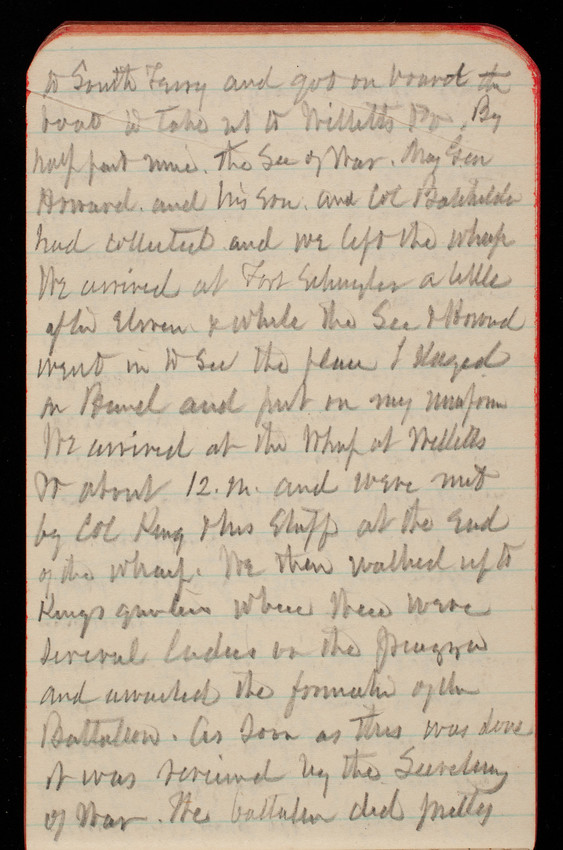 to South Ferry and got on board the
boat to take us to Willetts Pt. By
half past nine. the Sec of War. Maj Gen
Howard. and his son. and Col Batchelder
had collected and we left the wharf
We arrived at Fort Schuyler a little
after Eleven & while the Sec & Howard
went in to see the place I stayed
on Board and put on my uniform
We arrived at the wharf at Willetts
Pt about 12. M. and were met
by Col King & his Staff at the End
of the wharf. We then walked up to
Kings quarters where there were
several ladies on the piazza
and awaited the formation of the
Battalion. As soon as this was done
it was reviewed by the Secretary
of War. The battalion did pretty